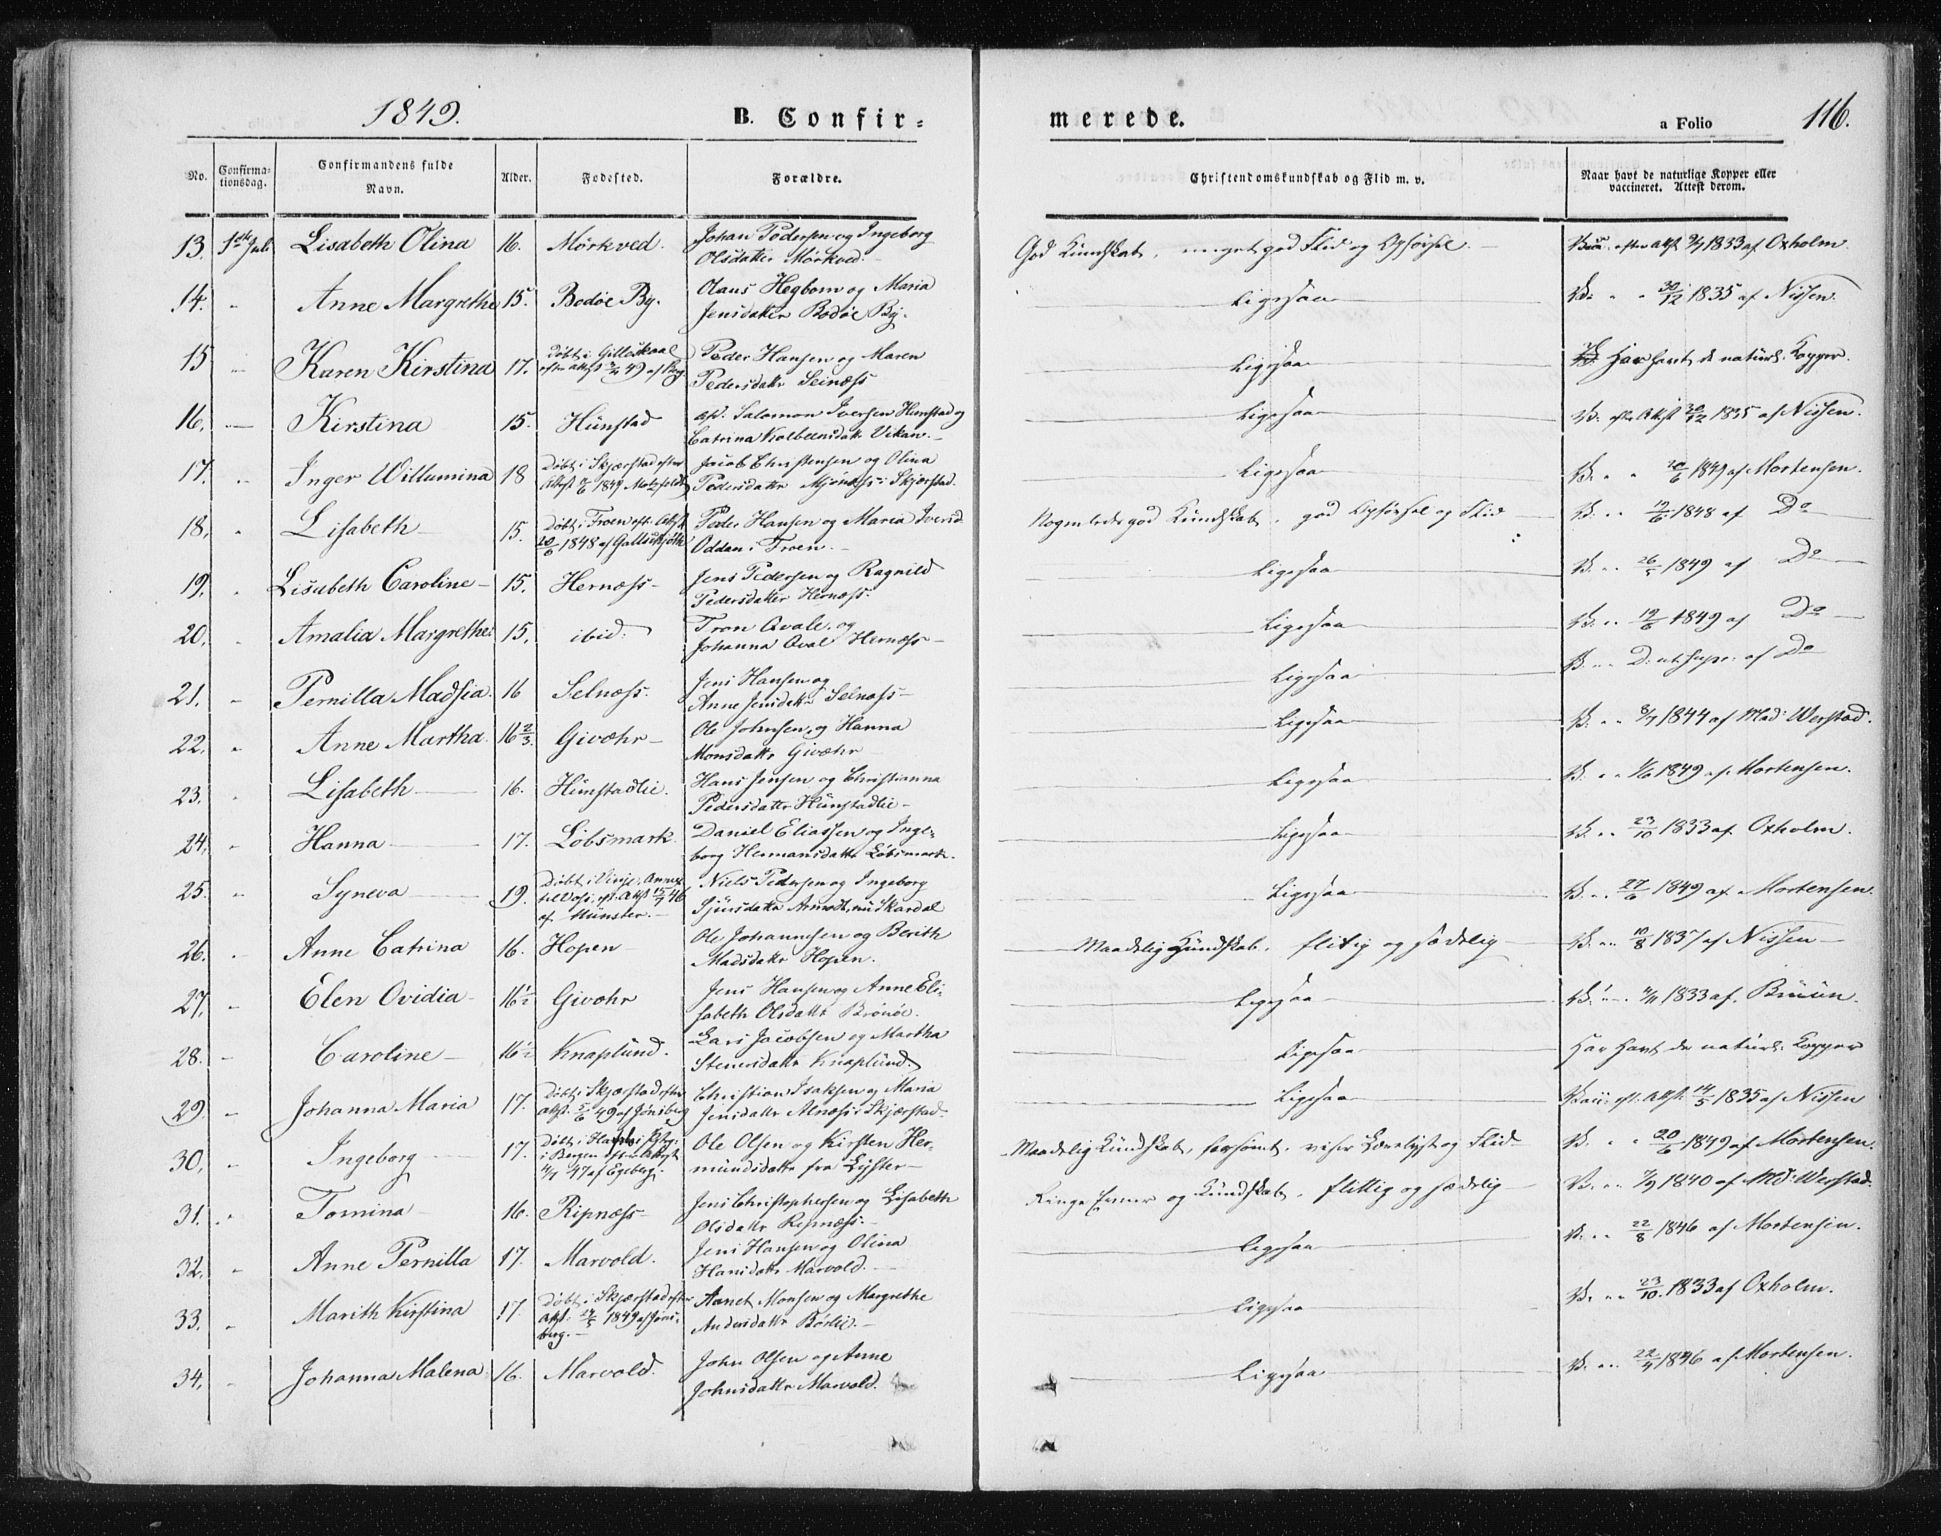 1849.
B. Confir=
merede.
a Folio
116.
No.
Confirma-
tionsdag.
Confirmandens fulde
Navn.
Alder.
Fødested.
Forældre.
Christendomskundskab og Flid m. v.
Naar havt de naturlige Kopper eller
vaccineret. Attest derom.
13. 1ste Juli Lisabeth Olina 16. Mörkved. Johan Pedersen og Ingeborg
Olsdatter Mörkved.
God Kundskab, meget god Flid og Opförsel. 1833 af Oxholm.
14. " Anne Margrethe 15. Bodöe By. Olaus Hegbom og Maria
Jensdatter Bodöe By.
Ligesaa V. " " 30/12 1835 af Nissen.
15 Karen Kirstina 17. Döbt i Gilleskaal
Peder Hansen og Maren
Pedersdatter Seinæss
Ligesaa Har havt de naturl. Kopper.
16. Kirstina 15. Hunstad Salomon Iversen Hunstad og
Catrina Kolbeensdatr Vikan.
Ligesaa V. efter Attest 30/12 1835 af Nissen.
17. " Inger Willumina 18 Döbt i Skjærstad efter
Attest 1849 Motzfeldt
Jacob Christensen og Olina
Pedersdattr Mjönæss i Skjærstad.
Ligesaa V. " 20/6 1849 af Mortensen.
18. " Lisabeth 15. Döbt i Froen eft. Attst
20/6 1848 af
Peder Hansen og Maria Iversd.
Oddan i Froen.
Nogenledes god Kundskab, god Opförsel og Flid V. " " 19/6 1848 af Do
19. " Lisabeth Caroline 15. Hernæss Jens Pedersen og Ragnild
Pedersdatter Hernæss.
Ligesaa V. " " 26/5 1849 af Do
20. " Amalia Margrethe 15. ibid: Tron Qvale og
Johanna Qval Hernæss
Ligesaa V. " " 19/6 1849 af Do
21. " Pernilla Madsia. 16 Selnæss. Jens Hansen og
Anne Jensdatr Selnæss
Ligesaa V. " " D. ut supr: af Do
22. " Anne Martha. 16 2/3. Givæhr Ole Johnsen og Hanna
Monsdattr Givæhr
Ligesaa V. " " 8/7 1844 af Mad: Werstad.
23. " Lisabeth 16. Hunstadlie. Hans Jensen og Christianna
Pedersdattr Hunstadlie
Ligesaa V. " " 1/6 1849 af Mortensen.
24. " Hanna 17. Löbsmark. Daniel Eliassen og Inge-
borg Hermansdattr Löbsmark.
Ligesaa V. " " 23/10 1833 af Oxholm.
25. " Syneva 19. Döbt i Vinje, Annex
til Voss, eft. Attst 15/7 46
af Münster.
Niels Pedersen og Ingeborg
Sjursdatr nu Skardal
Ligesaa V. " " 27/6 1849 af Mortensen.
26. " Anne Catrina 16. Hopen Ole Johannesen og Berith
Madsdatr Hopen.
Maadelig Kundskab, flitig og sædelig V. " " 10/8 1837 af Nissen
27. " Elen Ovidia 16½ Givæhr Jens Hansen og Anne Eli-
sabeth Olsdattr Brönöe.
Ligesaa V. " " 4/11 1833 af Bruun.
28. " Caroline 16½ Knaplund. Lars Jacobsen og Martha
Steensdattr Knaplund.
Ligesaa Har havt de naturl: Kopper
29. " Johanna Maria 17. Döbt i Skjærstad efter
Attst. 5/6 49 af Jönsberg
Christian Isaksen og Maria
Jensdattr Alnæss i Skjærstad.
Ligesaa Vacc: eft. Attst. 14/5 1835 af Nissen
30. " Ingeborg 17. Döbt i
i Bergen efter Attest
4/7 47 af Egeberg.
Ole Olsen og Kirsten Her-
mundsdattr fra Lyster
Maadelig Kundskab, forsömt, viser Lærelyst og Flid V. " " 20/6 1849 af Mortensen.
31. " Tomina 16. Ripnæss Jens Christophersen og Lisabeth
Olsdattr Ripnæss.
Ringe Evner og Kundskab, flittig og sædelig V. " " 7/9 1840 af Md: Werstad.
32. " Anne Pernilla 17. Marvold. Jens Hansen og Olina
Hansdattr Marvold.
Ligesaa V. " " 22/8 1846 af Mortensen.
33. " Marith Kirstina 17. Döbt i Skjærstad efter
Attst: 24/5 1849 af Jöns-
berg.
Aanet Monsen og Margrethe
Andersdattr Börlie.
Ligesaa V. " " 23/10 1833 af Oxholm.
34. " Johanna Malena 16. Marvold. John Olsen og Anne
Johnsdattr Marvold.
Ligesaa V. " " 22/4 1846 af Mortensen.